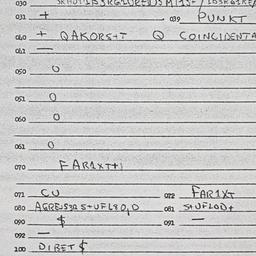 030
031 + 039 PUNKT
040 + QAKORS+T Q COINCIDENTA
041 —
050 0
051 0
060 0
061 0
070 FAR1XT+1
071 CU 072 FAR1XT
080 081 S+UFLOD+
090 $ 091 —
092 —
100 DIBET $